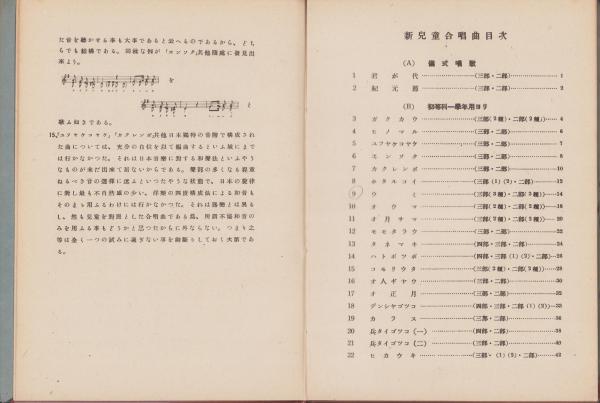 た音を聽かせる事も大事であると云へるのであるから、どち
らでも結構である。同樣な例が「エンソク」其他隨處に發見出
來よう。
を
と
歌ふ如きである。
15.「ユフヤケコヤケ」「カクレンボ」其他日本獨特の音階で構成され
た曲については、充分の自信を以て編曲するといふ域にまで
は行かなかつた。それは日本音樂に對する和聲法といふやう
なものが未だ出來て居ないからである。
に對し最も不自然感の少い、
そのまゝ用ふるわけには行かなかつた。
し、然も兒童を對照とした合唱曲である爲、所謂不協和音の
みを用ふる事もどうかと思つたからに外ならない。つまり之
等は全く一つの試みに過ぎない事を御斷りしておく次第であ
る。
新兒童合唱曲目次
(A) 儀式唱歌
1 君が代 (三部・二部) 1
2 紀元節 (三部・二部) 2
(B) 初等科一學年用ヨリ
3 ガクカウ (三部(2種)・二部(2種)) 4
4 ヒノマル (三部・二部) 6
5 ユフヤケコヤケ (三部・二部) 7
6 エンソク (三部・二部) 8
7 カクレンボ (三部・二部) 10
8 ホタルコイ (三部(1)(2)・二部) 12
9 ウミ (三部(3種)・二部(3種)) 14
10 オウマ (三部(2種)・二部(2種)) 16
11 オ月サマ (三部(2種)・二部(2種)) 20
12 モモタラウ (三部・二部) 22
13 タネマキ (四部・三部・二部) 24
14 ハトポツポ (四部・三部(1)(2)・二部) 26
15 コモリウタ (三部(2種)・二部(2種)) 28
16 オ人ギヤウ (三部・二部) 30
17 オ正月 (三部・二部) 32
18 デンシヤゴツコ (四部・三部・二部(1)(2)) 33
19 カラス (三部・二部) 36
20 兵タイゴツコ(一) (四部・二部) 38
21 兵タイゴツコ(二) (三部・二部) 40
22 ヒカウキ (三部・(1)(2)・二部) 42